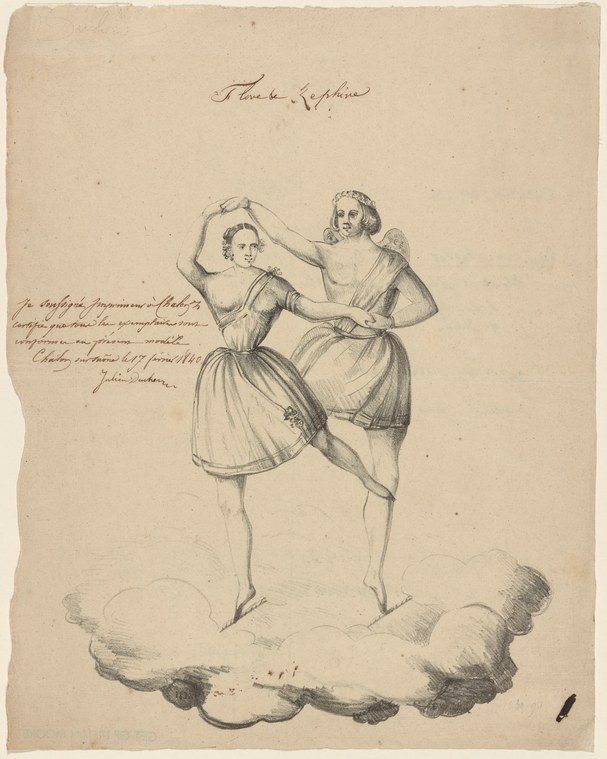 Flore & Zephire
Je soussigné Imprimeur à Chalon s
certifie que tous les exemplaires sont
conformes au présent modèle
Chalon sur Saône le 17 février 1840
Julien